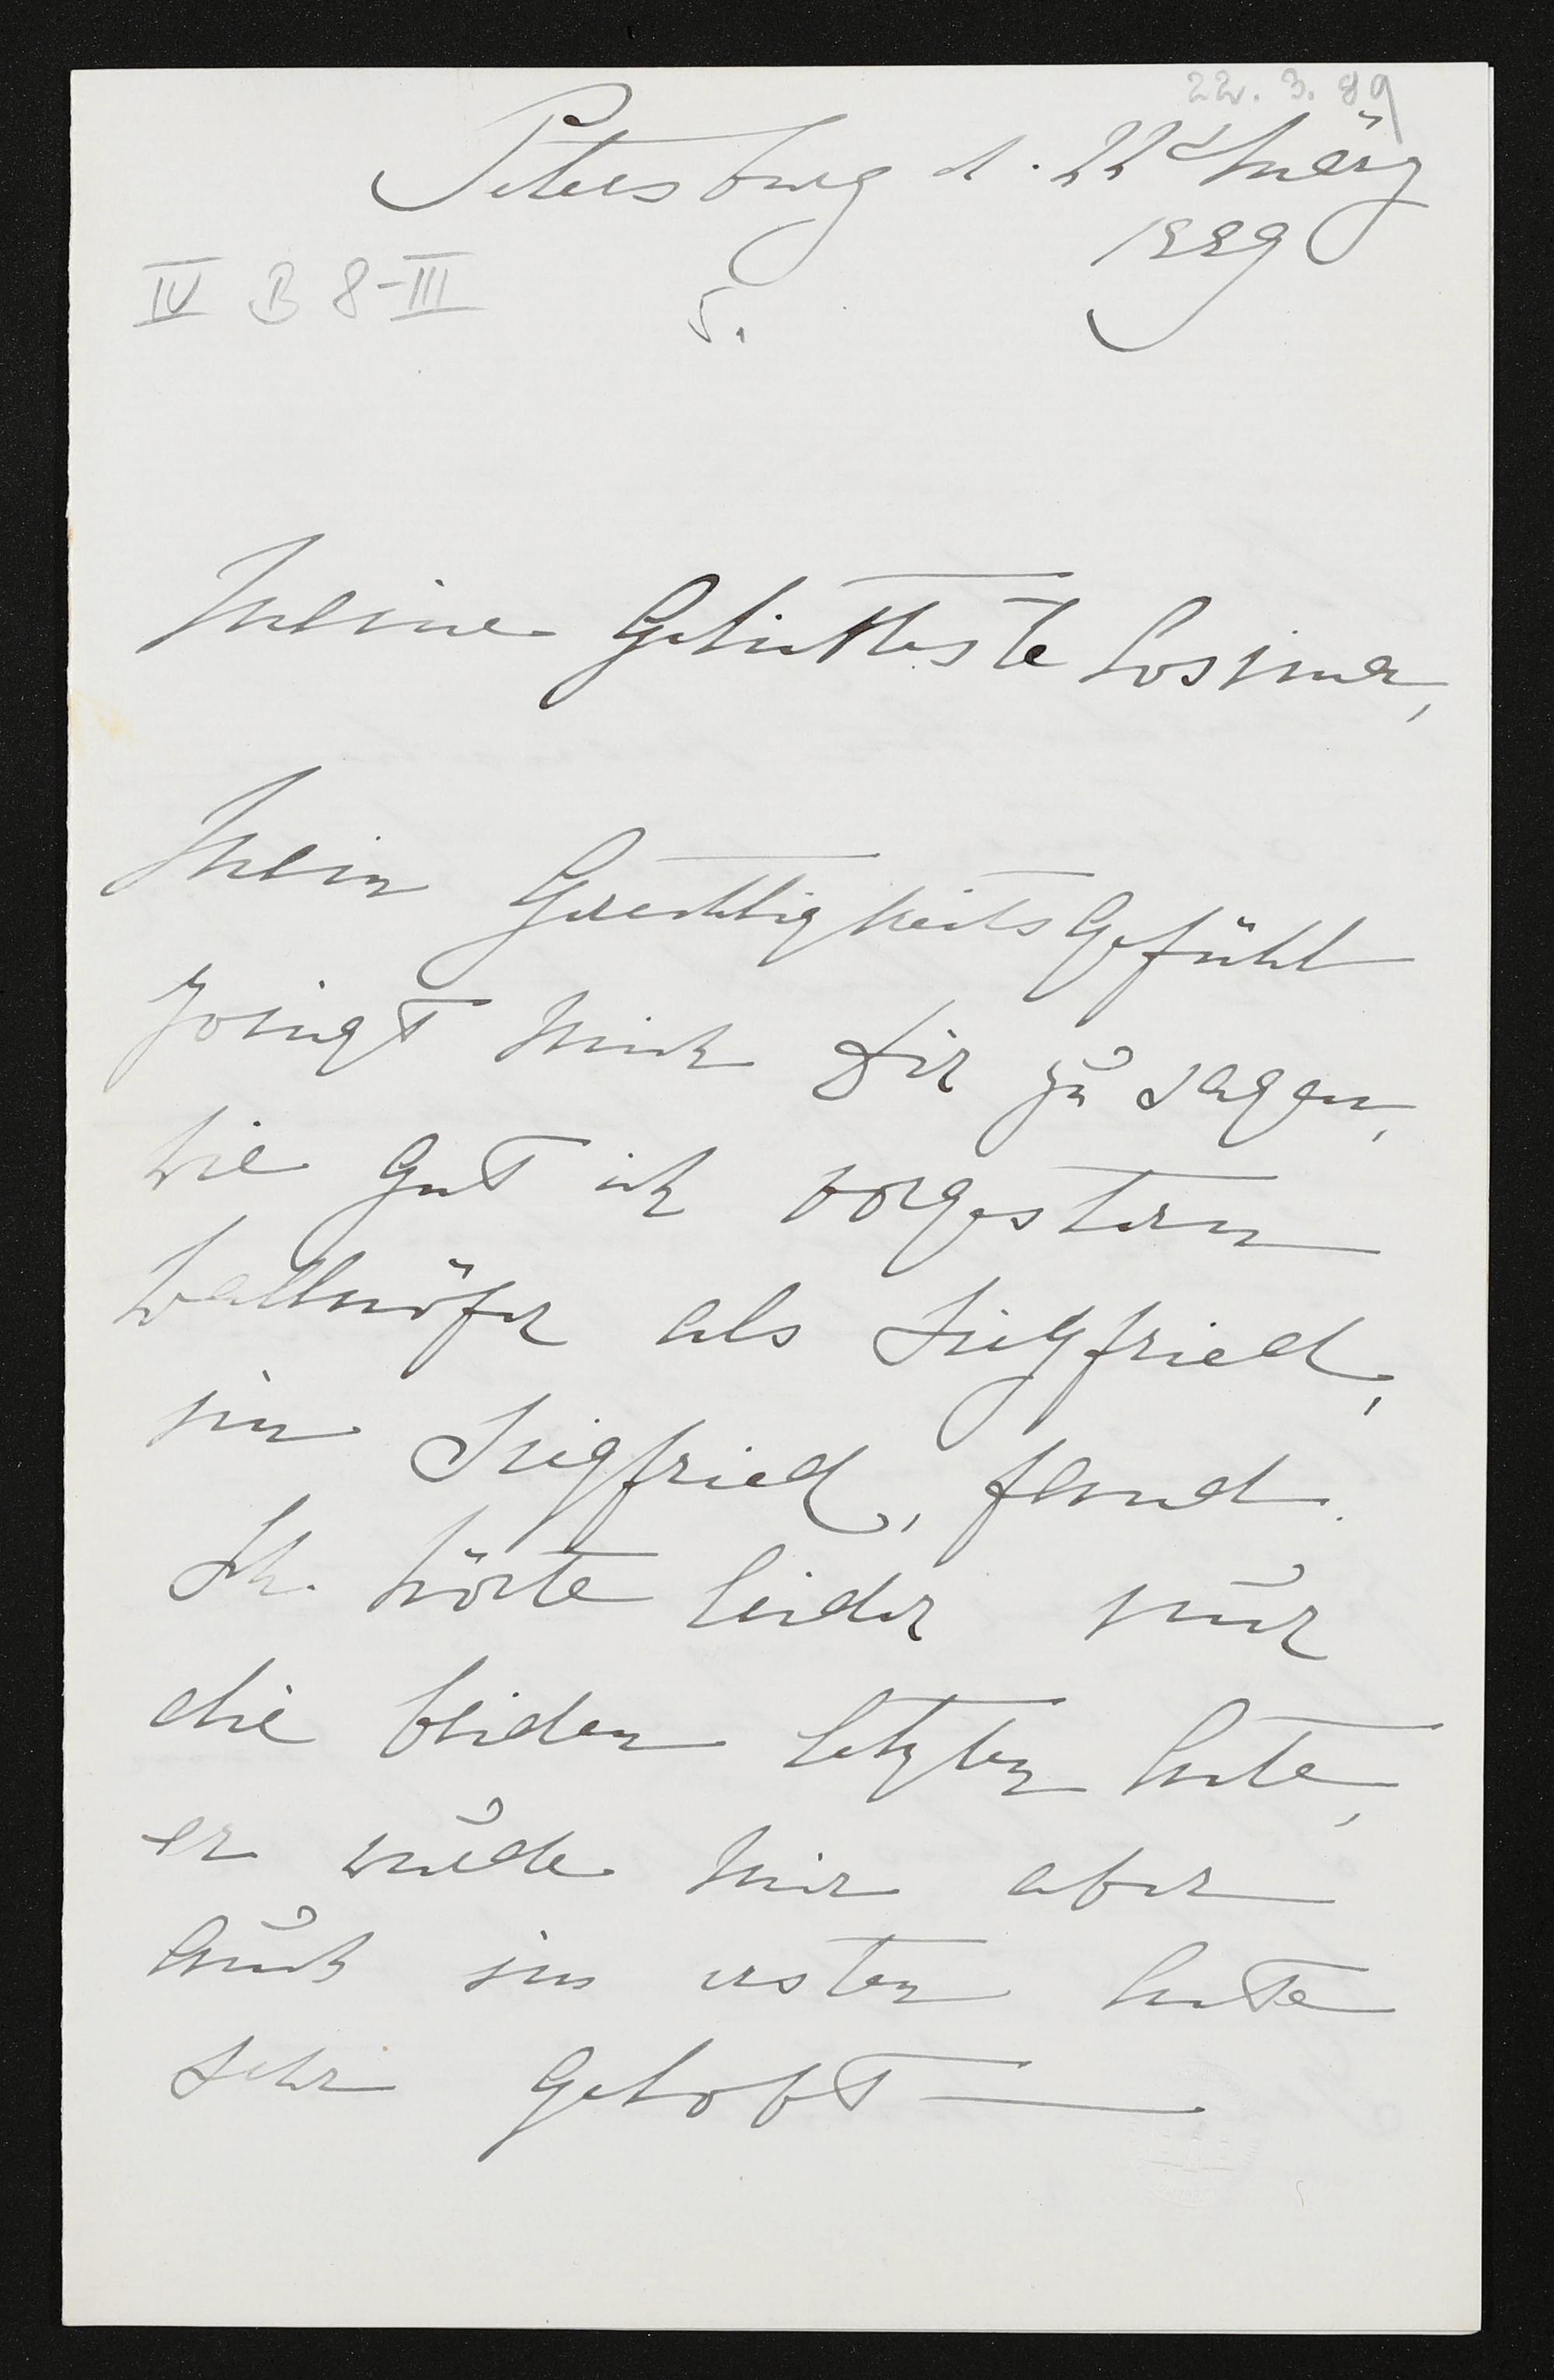 22. 3. 89
Petersburg d. 22ᵈ März
1889
IV B 8-III
5.
Meine Geliebteste Cosima,
Mein Gerechtigkeits Gefühl
zwingt mich Dir zu sagen,
wie gut ich vorgestern
Wallnöfer als Siegfried,
im Siegfried, fand.
Ich hörte leider nur
die beiden letzten Acte,
er wurde mir aber
auch im ersten Acte
sehr gelobt —